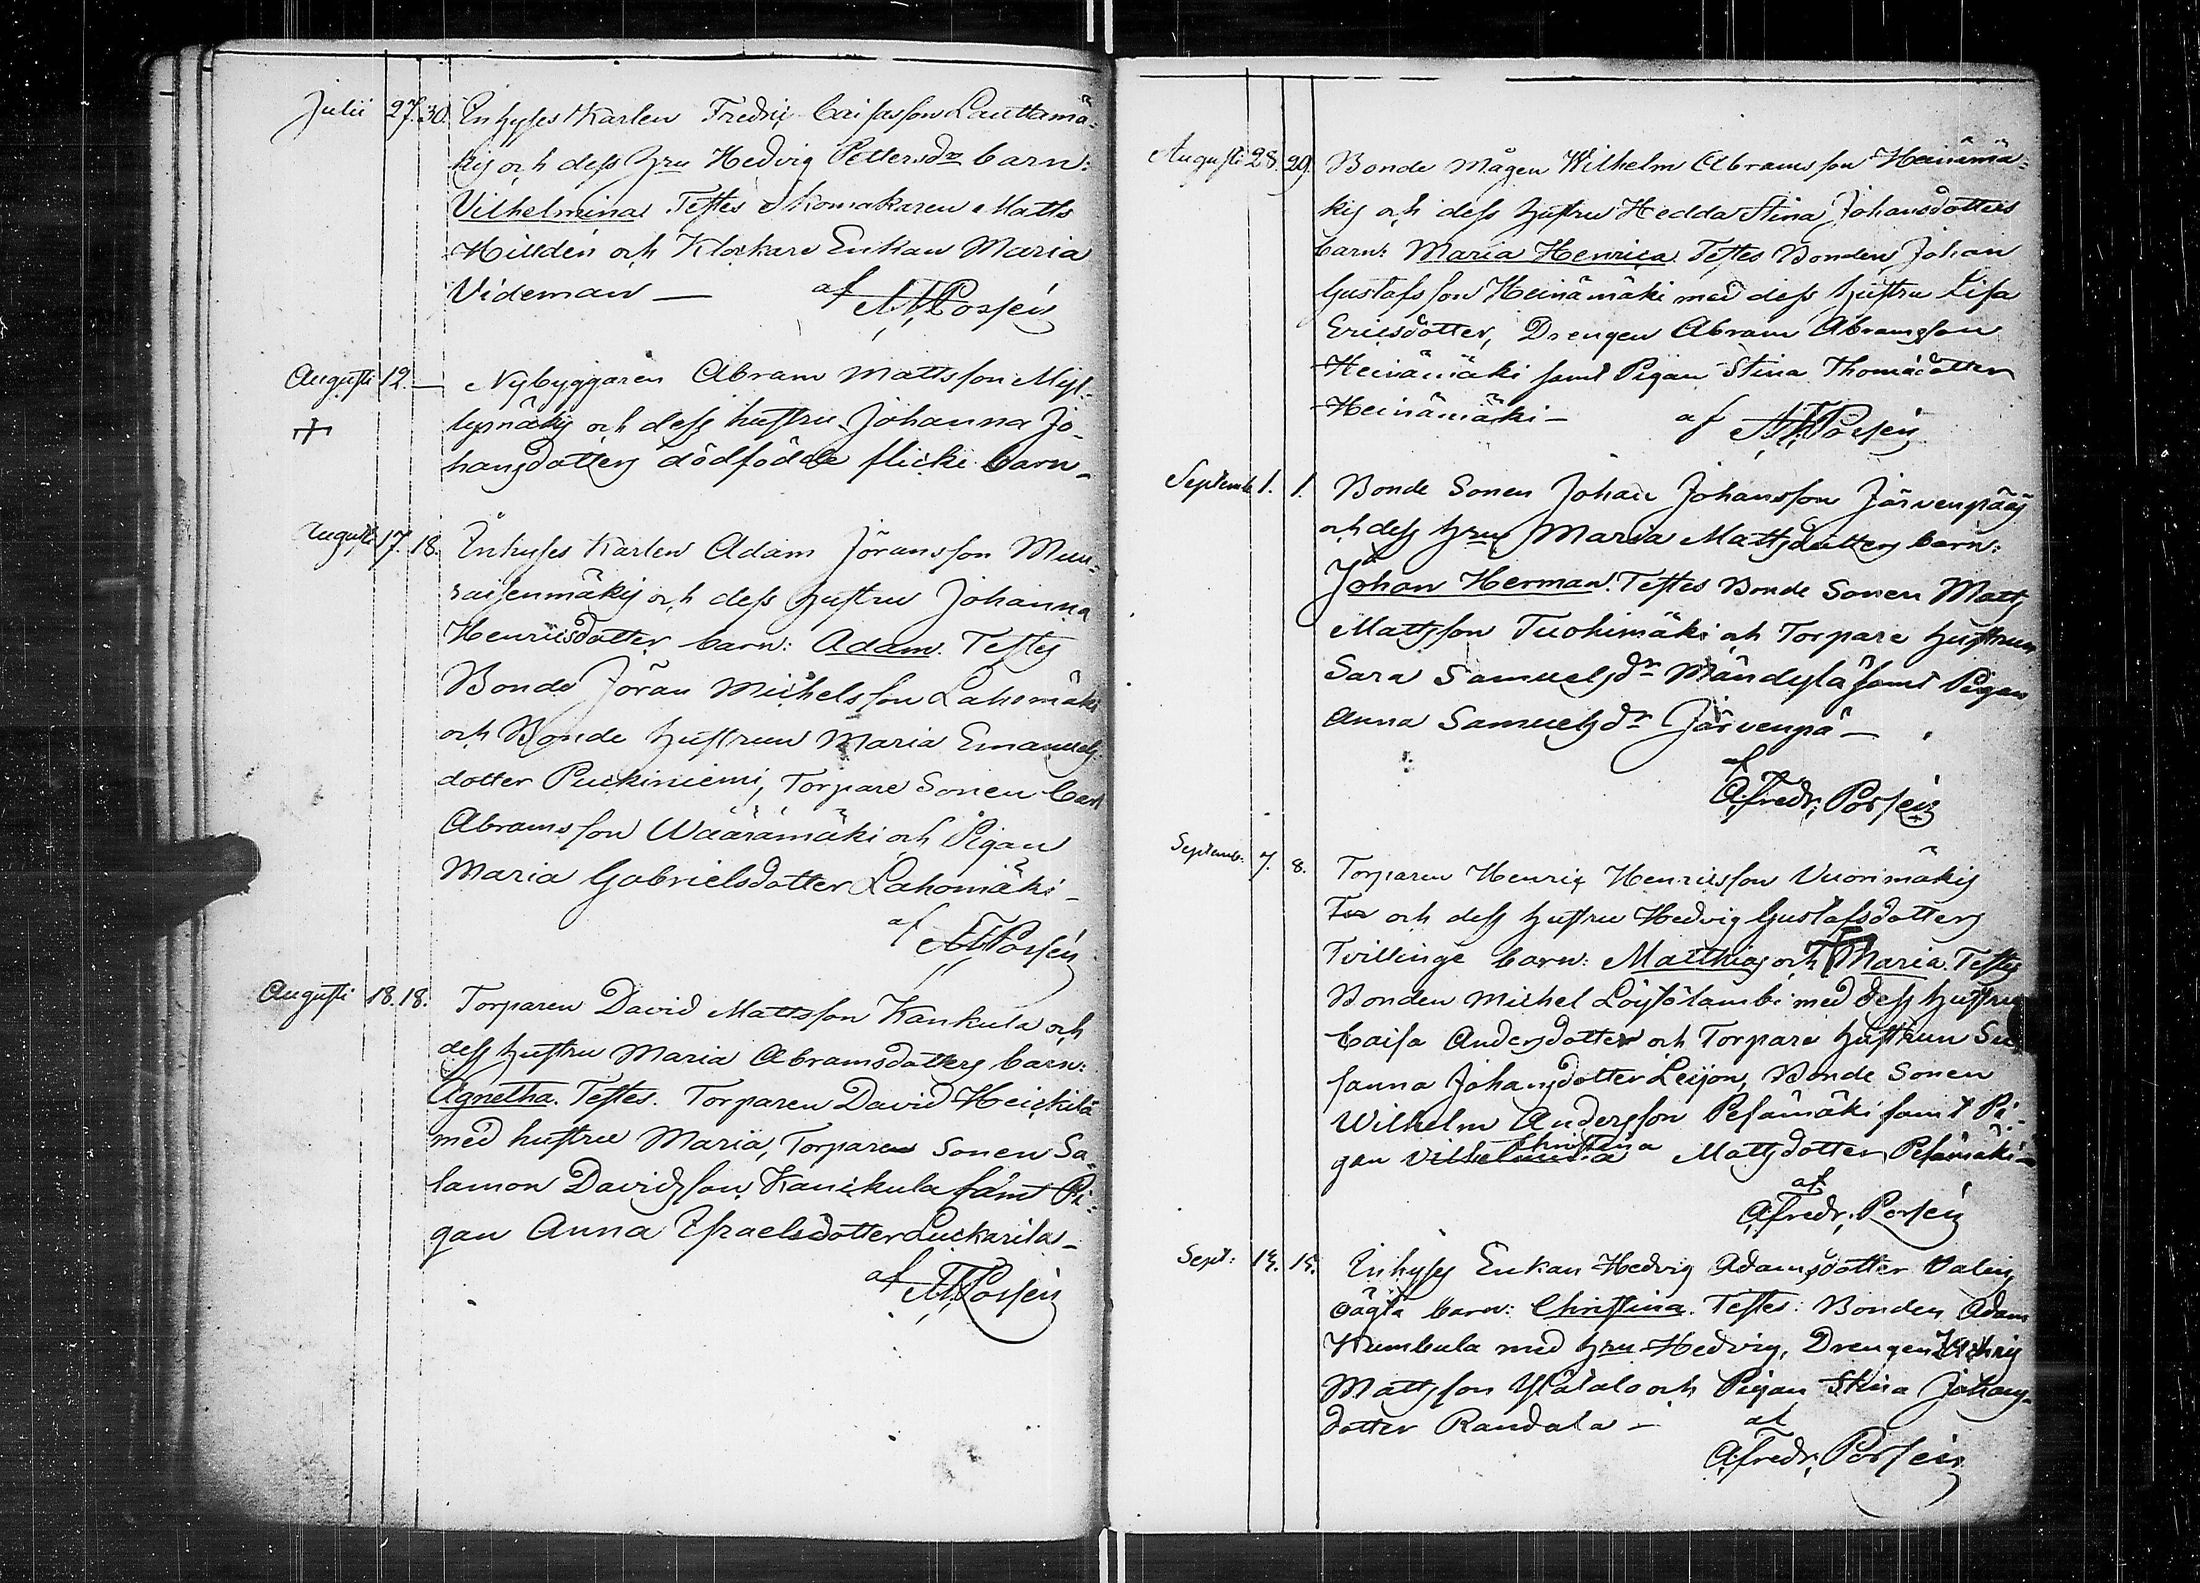 Julii 27. 30. Inhyses Karlen Fredric Caisasson Lauttamä-
kis och dess Hru Hedvig Pettersdr barn:
Vilhelmina. Testes Skomakaren Matts
Hilldén och Klockare Enkan Maria
Videman —
af A F Porsén
Augusti 12. — Nybyggaren Abram Mattsson Myl-
lymäkis och dess hustru Johanna Jo-
hansdotters dödfödde flicke barn —
Augusti 17. 18. Inhyses Karlen Adam Jöransson Muu-
raisenmäkis och dess hustru Johanna
Henricsdotter barn: Adam. Testes
Bonde Jöran Michelsson Lahomäki
och Bonde hustrun Maria Emanuels
dotter Puckiniemi, Torpare Sonen Carl
Abramsson Wäärämäki och Pigan
Maria Gabrielsdotter Lahomäki —
af A F Porsén
Augusti 18. 18. Torparen David Mattsson Kankula och
dess hustru Maria Abramsdotters barn:
Agnetha. Testes. Torparen David Heickilä
med hustru Maria, Torparen Sonen Sa-
lamon Davidsson Kanckula samt Pi-
gan Anna Israelsdotter Luckarila —
af A F Porsén
Augusti 28. 29. Bonde Mågen Wilhelm Abramsson Heinämä-
kis och dess hustru Hedda Stina Johansdotters
barn: Maria Henrica. Testes Bonden Johan
Gustafsson Heinämäki med dess hustru Lisa
Ericsdotter, Drengen Abram Abramsson
Heinämäki samt Pigan Stina Thomædotter
Heinämäki —
af A F Porsén
Septemb. 1. 1. Bonde Sonen Johan Johansson Järvenpääs
och dess hru Maria Mattsdotters barn:
Johan Herman. Testes Bonde Sonen Matts
Mattsson Tuohimäki och Torpare hustrun
Sara Samuelsdr Mändylä samt Pigan
Anna Samuelsdr Järvenpä —
af
A. Fredr. Porsén
Septemb. 7. 8. Torparen Henric Henricsson Vuorimäkis
och dess hustru Hedvig Gustafsdotters
Tvillinge barn: Matthias och Maria. Testes
Bonden Michel Löytölambi med dess hustru
Caisa Andersdotter och Torpare hustrun Su-
sanna Johansdotter Leijon, Bonde Sonen
Wilhelm Andersson Pesämäki samt Pi-
gan Vilhelmina Christina Mattsdotter Pesämäki —
af
A. Fredr. Porsén
Sept: 14. 15. Inhyses Enkan Hedvig Adamsdotter Valins
oägta barn: Christina. Testes: Bonden Adam
Kumbula med hru Hedvig, Drengen Henric
Mattsson Ylätalo och Pigan Stina Johans-
dotter Randala —
af
A. Fredr. Porsén